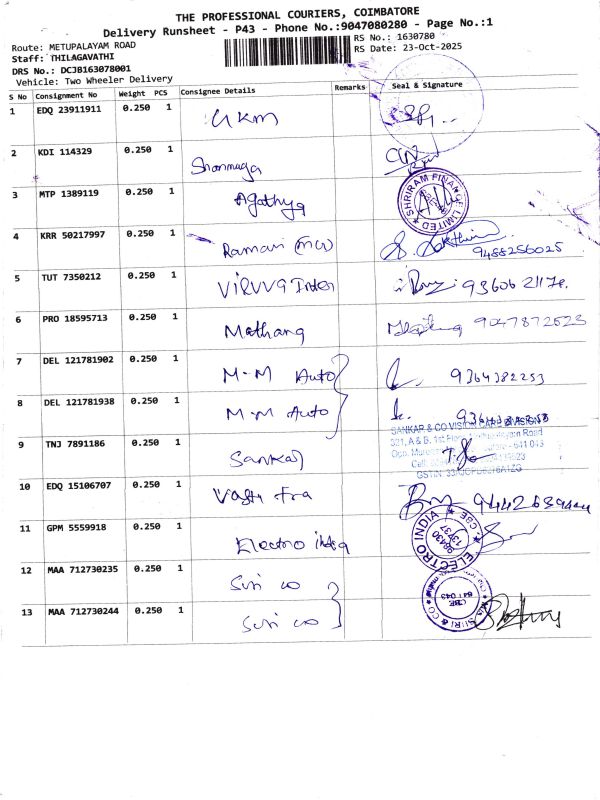 THE PROFESSIONAL COURIERS, COIMBATORE
Delivery Runsheet - P43 - Phone No.:9047080280 - Page No.:1
Route: METUPALAYAM ROAD
RS No.: 1630780
Staff: THILAGAVATHI
RS Date: 23-Oct-2025
DRS No.: DCJB163078001
Vehicle: Two Wheeler Delivery
S No Consignment No Weight PCS Consignee Details Remarks Seal & Signature
1 EDQ 23911911 0.250 1
2 KDI 114329 0.250 1 Shanmuga
3 MTP 1389119 0.250 1 Agathya
SHRIRAM FINANCE LIMITED
4 KRR 50217997 0.250 1 Raman 9488256025
5 TUT 7350212 0.250 1
6 PRO 18595713 0.250 1 Mathang 9047872523
7 DEL 121781902 0.250 1 M-M Auto 9364382253
8 DEL 121781938 0.250 1 M-M Auto
SANKAR & CO VISION CARE
9 TNJ 7891186 0.250 1 Sankar
10 EDQ 15106707 0.250 1 Vastra
11 GPM 5559918 0.250 1 Electro
ELECTRO INDIA CBE
98430
13737
12 MAA 712730235 0.250 1 Siri co
13 MAA 712730244 0.250 1 Siri co
CBE
641 043